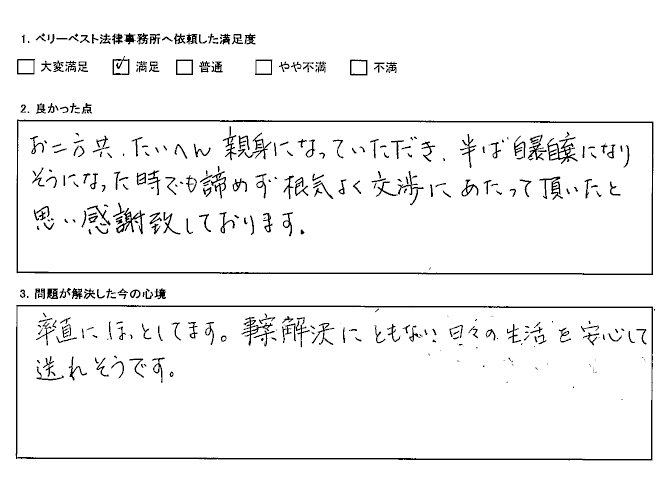 1. ベリーベスト法律事務所へ依頼した満足度
□ 大変満足 ☑ 満足 □ 普通 □ やや不満 □ 不満
2. 良かった点
お二方共、たいへん親身になっていただき、半ば自暴自棄になり
そうになった時でも諦めず根気よく交渉にあたって頂いたと
思い感謝致しております。
3. 問題が解決した今の心境
率直にほっとしてます。事案解決にともない日々の生活を安心して
送れそうです。